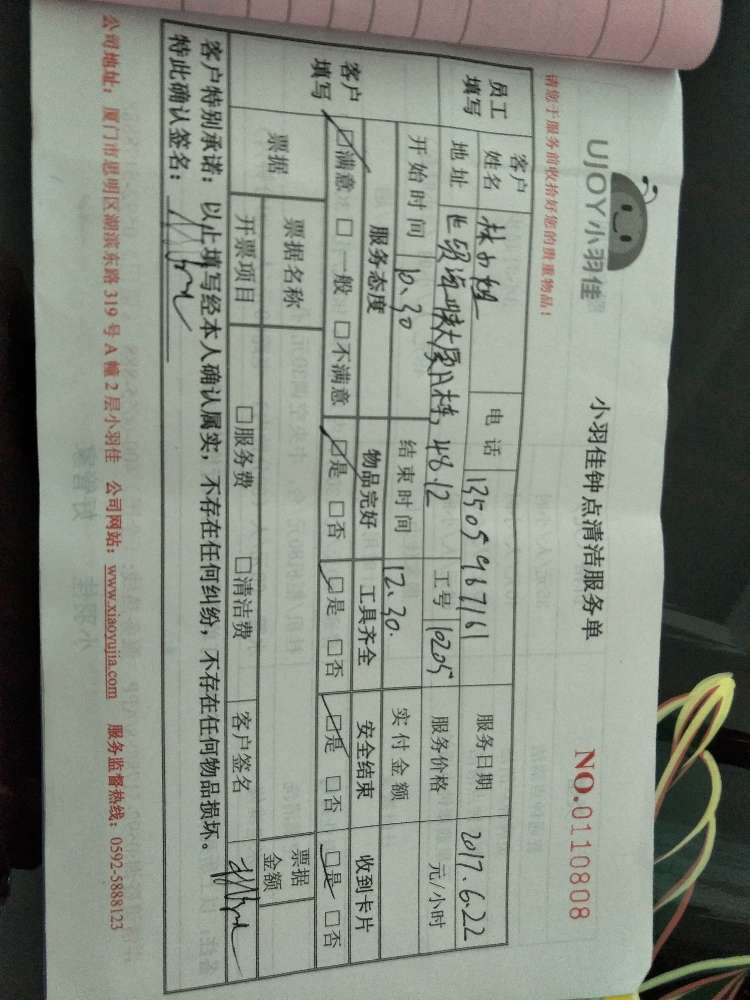 UJOY小羽佳
小羽佳钟点清洁服务单
NO.0110808
请您于服务前收拾好您的贵重物品！
员工填写
客户姓名 林 电话 13505967161 服务日期 2017.6.22
地址 世贸海峡大厦A栋，4812 工号 10205 服务价格 元/小时
开始时间 10.30 结束时间 12.30. 实付金额
客户填写
服务态度 物品完好 工具齐全 安全结束 收到卡片
☑满意 □一般 □不满意 ☑是 □否 ☑是 □否 ☑是 □否 ☑是 □否
票据 票据名称 票据金额
开票项目 □服务费 □清洁费 客户签名
客户特别承诺：以上填写经本人确认属实；不存在任何纠纷，不存在任何物品损坏。
特此确认签名：
公司地址：厦门市思明区湖滨东路319号A幢2层小羽佳 公司网站：www.xiaoyujia.com 服务监督热线：0592-5888123